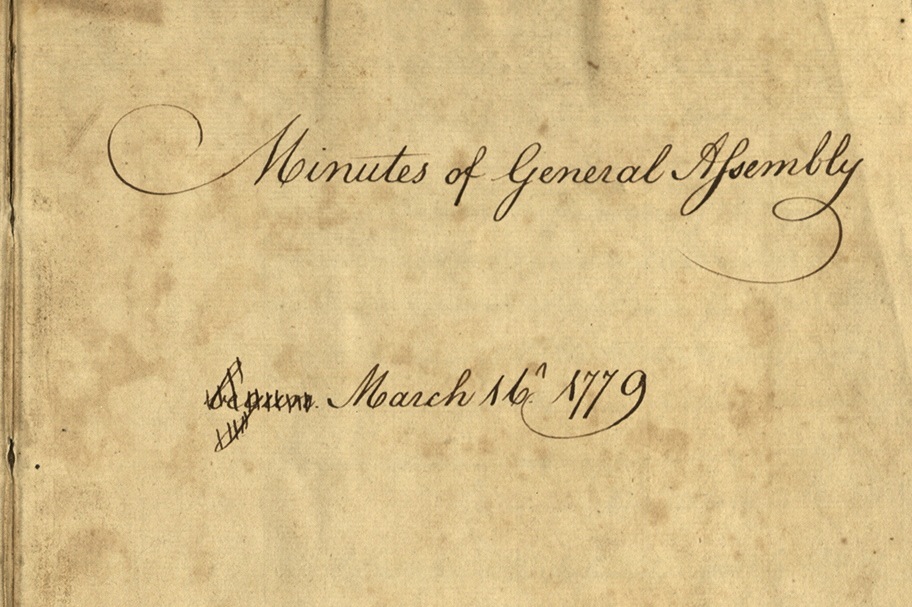 Minutes of General Assembly
March 16. 1779